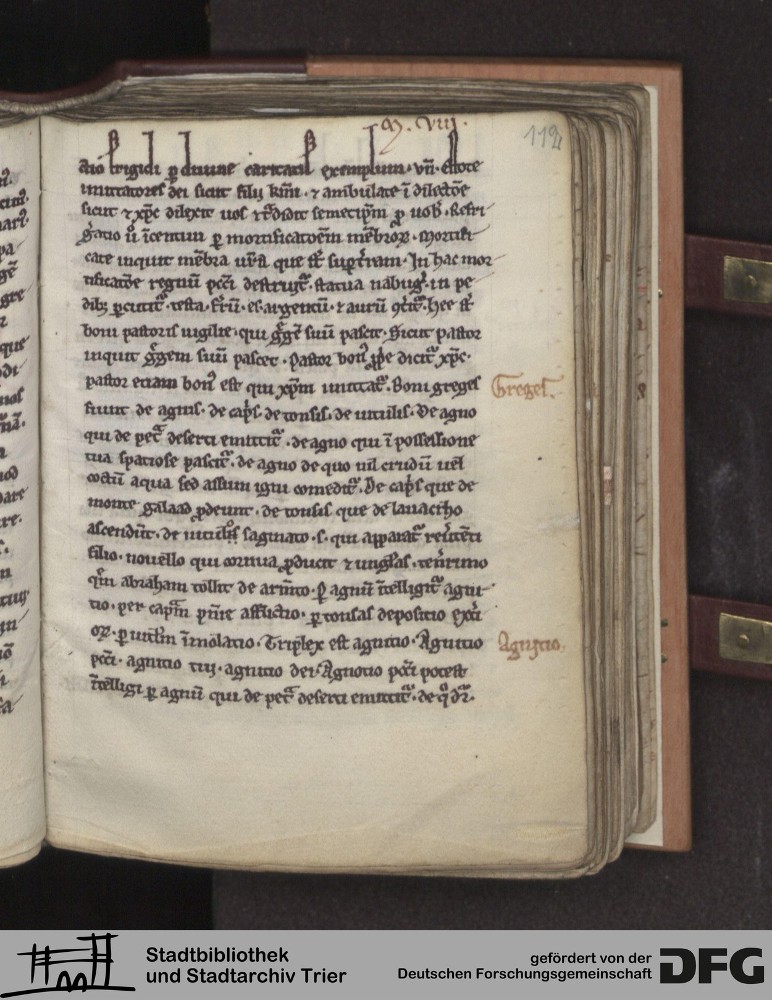 112
aio frigidi ꝑ diuine caritatis exemplum. vn̄. estote
imitatores dei sicut filij km̄i. ⁊ ambulate ī dilectōe
sicut ⁊ xp̄c dilexit uos ⁊
gatio ū īcentiui ꝑ mortificatōem mēbroꝝ. Mortifi
cate inquit mēbra ur̄a que st̄ suꝑ t̄ram. In hac mor
tificatōe regnū pcc̄i destruit᷑. statua nabuḡ. in pe
dibꝫ ꝑcutit᷑. testa. fr̄ū. es. argentū. ⁊ aurū hee st̄
boni pastoris uigilie. qui gͣgē suū pascit. Sicut pastor
inquit gͣgem suū pascet. Pastor bonꝰ ꝓp̄e dicit᷑ xp̄c.
pastor etiam bonꝰ est qui xp̄m imitat᷑. Boni greges
Greges.
sunt de agnis. de capͥs. de tonsis. de uitulis. De agno
qui de pet̄ deserti emittit᷑. de agno qui ī possessione
tua spatiose pascit᷑. de agno de quo nil crudū uel
coctū aqua sed assum igni comedit᷑. De capͥs que de
monte galaad ꝓdeunt. de tonsis que de lauacro
ascendūt. de saginato. s. qui apparat᷑ reu̓tēti
filio. nouello qui cornua ꝓducit ⁊ ungl̄as. ten̓rimo
qm̄ abraham tollit de arm̄to. ꝑ agnū ītelligit᷑ agni
tio. per capͣm pn̄ie afflictio. ꝑ tonsas depositio ext̓i
oꝝ. ꝑ uitl̄m īmolatio. Triplex est agnitio. Agnitio
Agnitio.
pcc̄i. agnitio tui. agnitio dei. Agnotio pcc̄i potest
ītelligi ꝑ agnū qui de pet̄ deserti emittit᷑. de qͦ dr̄.
Stadtbibliothek
und Stadtarchiv Trier
gefördert von der
Deutschen Forschungsgemeinschaft
DFG